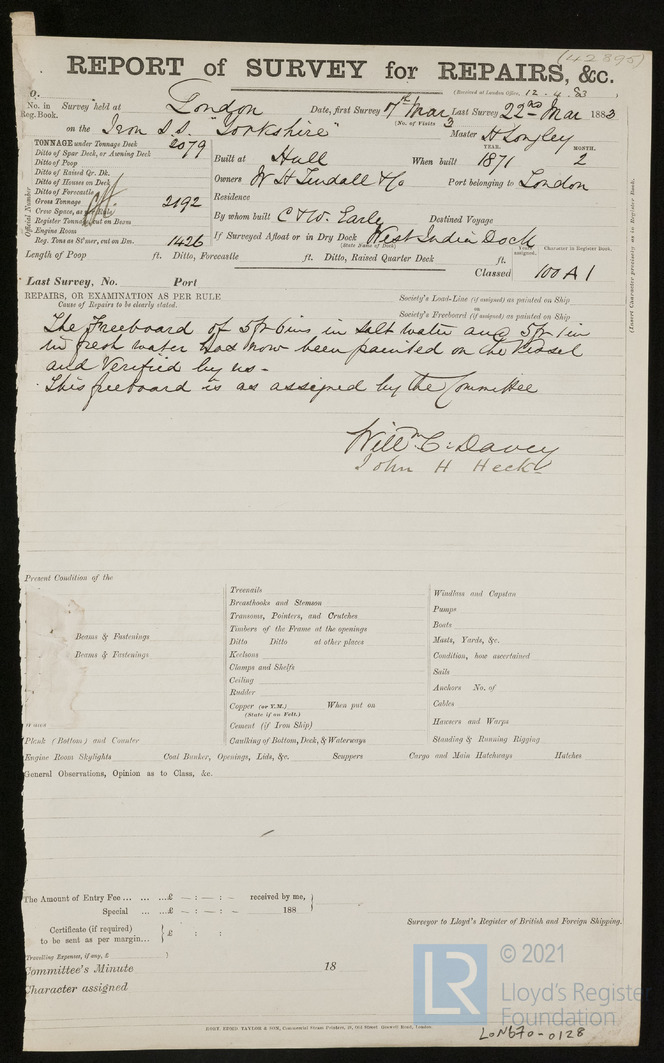 (42895)
REPORT of SURVEY for REPAIRS, &c.
(Received at London Office, 12. 4. 83
No. in Reg. Book. Survey held at London Date, first Survey 7th Mar Last Survey 22nd Mar 1883
(No. of Visits 3
on the Iron S.S. "Yorkshire" Master H Longley
TONNAGE under Tonnage Deck 2079
Ditto of Spar Deck, or Awning Deck
Ditto of Poop
Ditto of Raised Qr. Dk.
Ditto of Houses on Deck
Ditto of Forecastle
Gross Tonnage 2192
Crew Space, as per Rule
Register Tonnage cut on Beam
Engine Room
Reg. Tons as St'mer, cut on Bm. 1426
Official Number
YEAR. MONTH.
Built at Hull When built 1871 2
Owners W H Tindall & Co Port belonging to London
Residence
By whom built C & W. Earle Destined Voyage
If Surveyed Afloat or in Dry Dock West India Dock
(State Name of Dock)
Years assigned. Character in Register Book.
(Insert Character precisely as in Register Book.
Length of Poop ft. Ditto, Forecastle ft. Ditto, Raised Quarter Deck ft.
Classed 100 A 1
Last Survey, No. Port
REPAIRS, OR EXAMINATION AS PER RULE
Cause of Repairs to be clearly stated.
Society's Load-Line (if assigned) as painted on Ship
or
Society's Freeboard (if assigned) as painted on Ship
The Freeboard of 5ft 6ins in salt water and 5ft 1in
in fresh water has now been painted on the Vessel
and Verified by us -
This freeboard is as assigned by the Committee
Willm C. Davey
John H Heck
Present Condition of the
Beams & Fastenings
Beams & Fastenings
Plank (Bottom) and Counter
Treenails
Breasthooks and Stemson
Transoms, Pointers, and Crutches
Timbers of the Frame at the openings
Ditto Ditto at other places
Keelsons
Clamps and Shelfs
Ceiling
Rudder
Copper (or Y.M.) When put on
(State if on Felt.)
Cement (if Iron Ship)
Caulking of Bottom, Deck, & Waterways
Windlass and Capstan
Pumps
Boats
Masts, Yards, &c.
Condition, how ascertained
Sails
Anchors No. of
Cables
Hawsers and Warps
Standing & Running Rigging
Engine Room Skylights Coal Bunker, Openings, Lids, &c. Scuppers Cargo and Main Hatchways Hatches
General Observations, Opinion as to Class, &c.
The Amount of Entry Fee ... ... ...£ - : - : - received by me,
Special ... ...£ - : - : - 188
Certificate (if required) £ : :
to be sent as per margin...
Surveyor to Lloyd's Register of British and Foreign Shipping.
(Travelling Expenses, if any, £ )
Committee's Minute 18
Character assigned
LR © 2021
Lloyd's Register
Foundation
LON670-0128